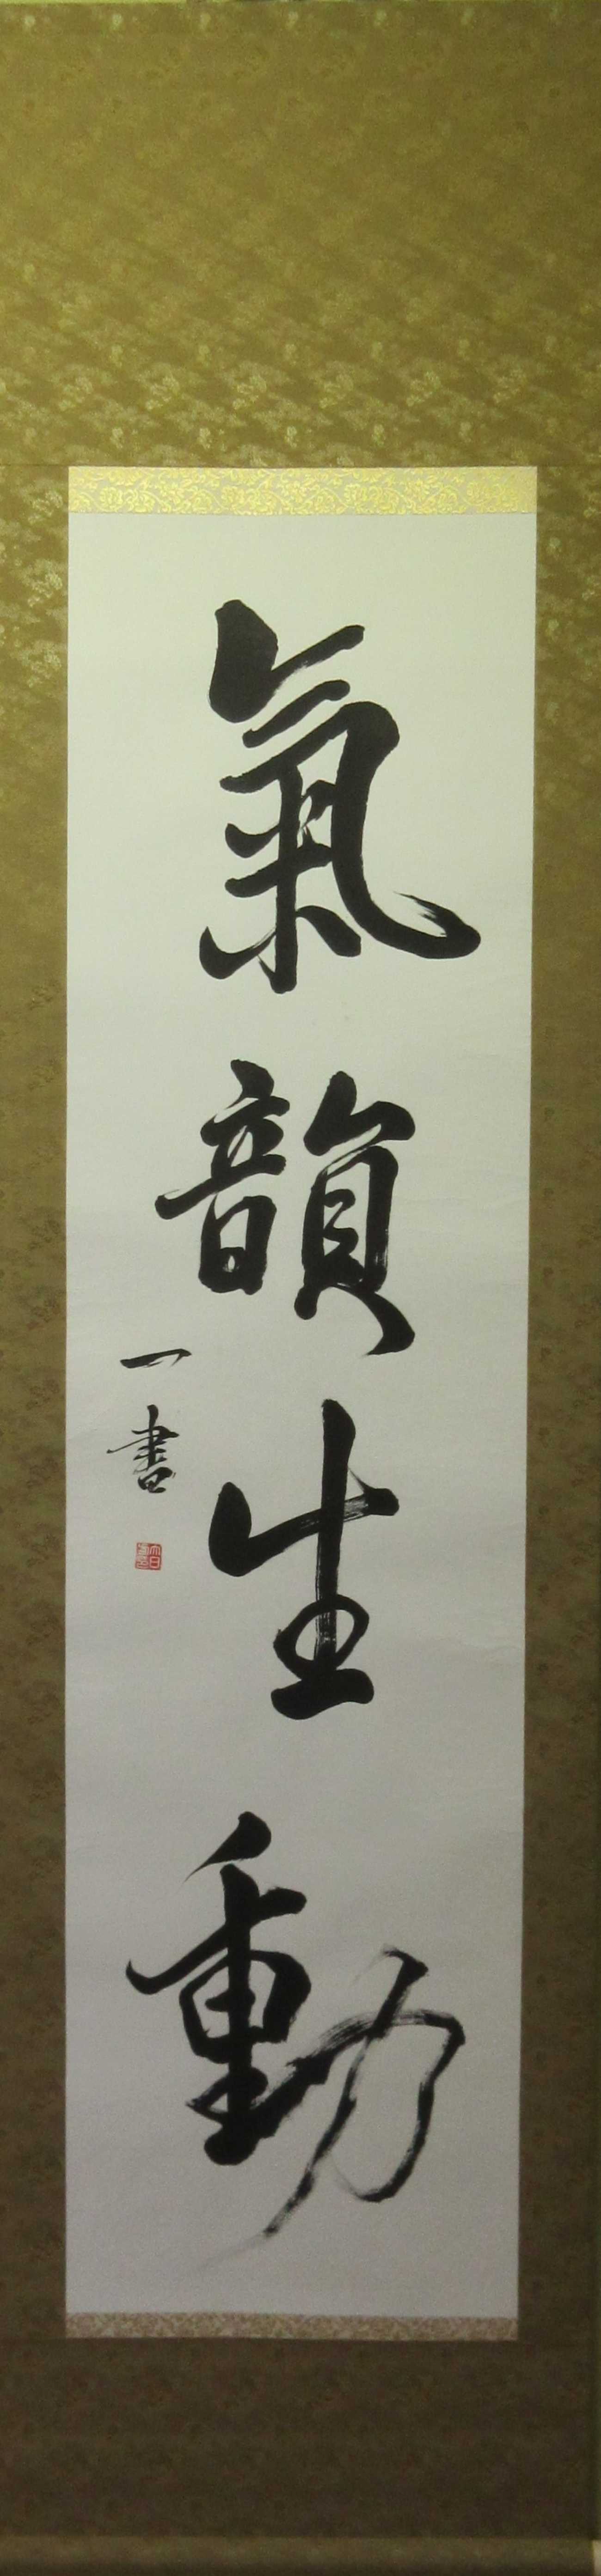 氣韻生動
一書